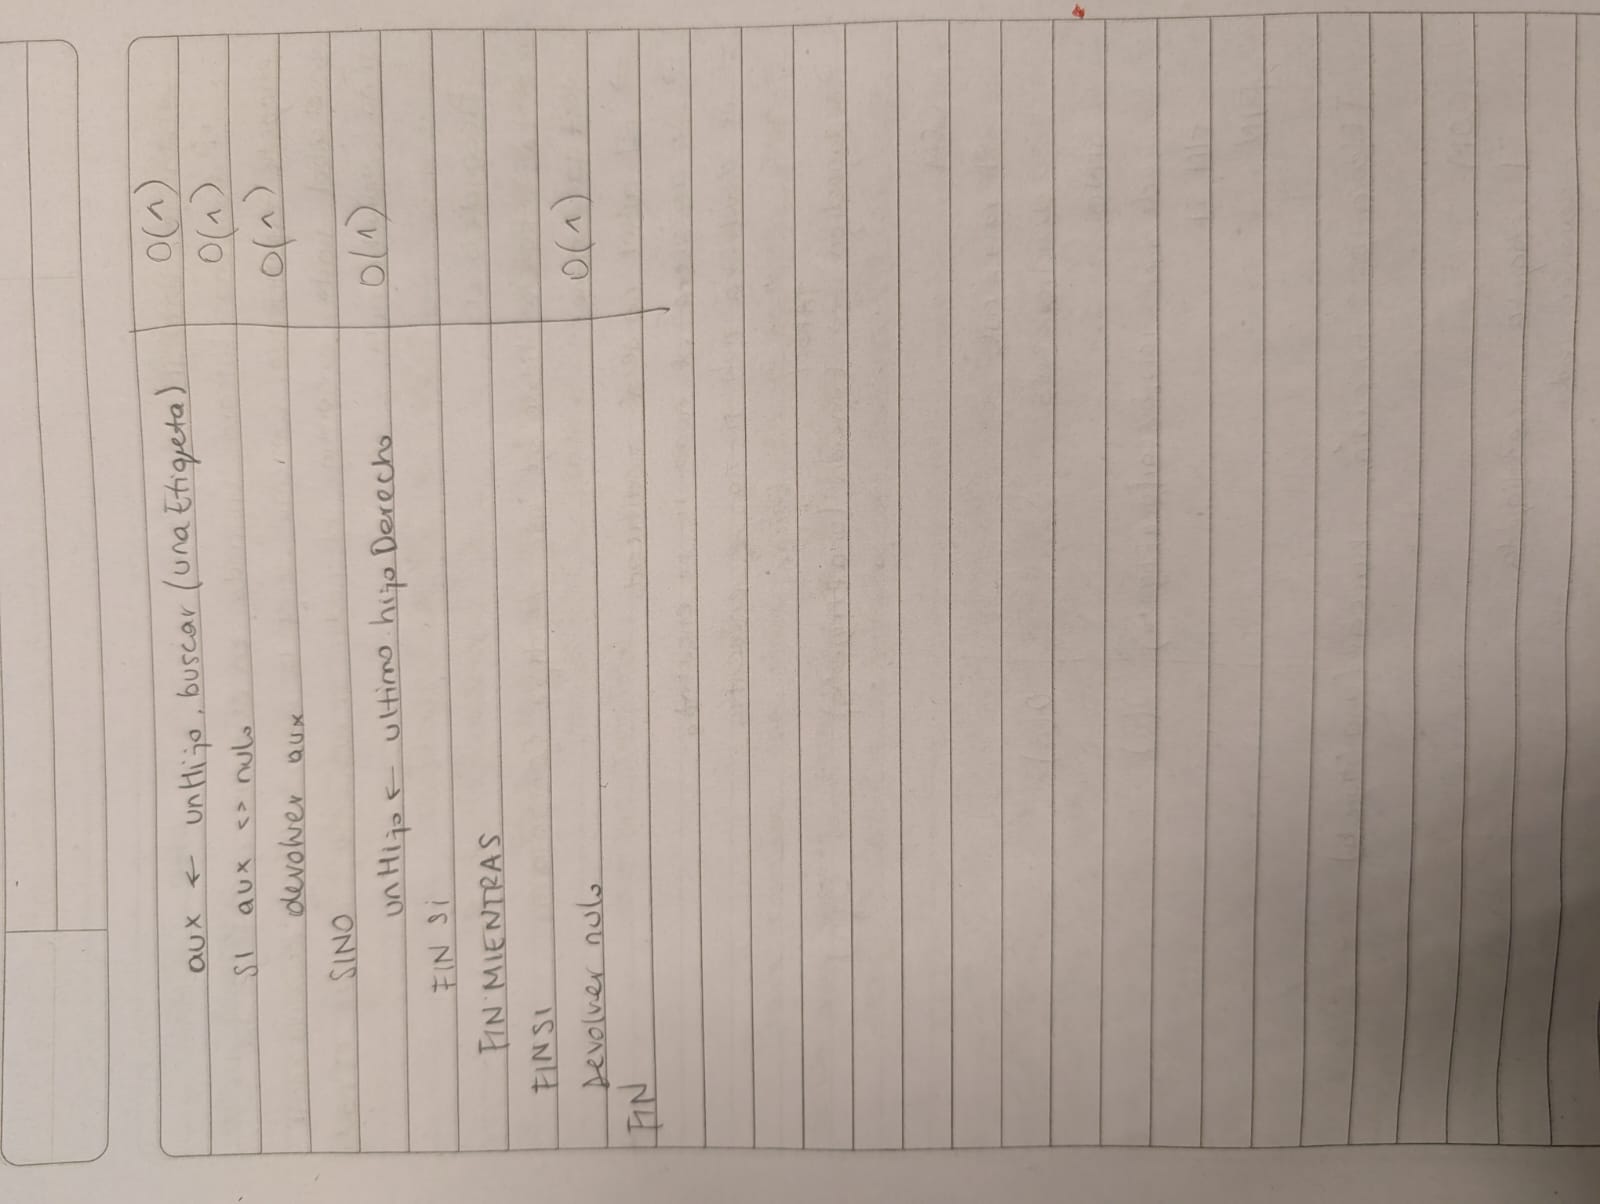 aux ← unHijo.buscar(unaEtiqueta) O(1)
SI aux <> nulo O(1)
devolver aux O(1)
SINO
unHijo ← ultimo.hijoDerecho O(1)
FIN Si
FIN MIENTRAS
FINSI
Devolver nulo O(1)
FIN